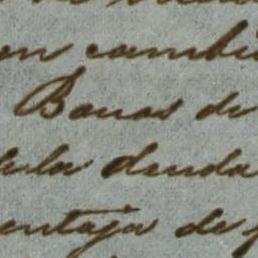 en cambi
Bonos de
dula deuda
entaja de